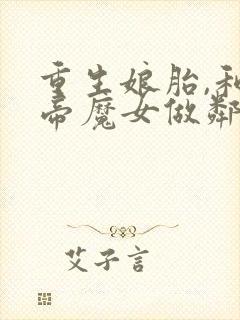 重生娘胎,和
帝魔女做鄰
艾子言